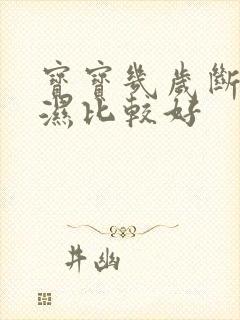 寶寶幾歲斷
濕比較好
井幽